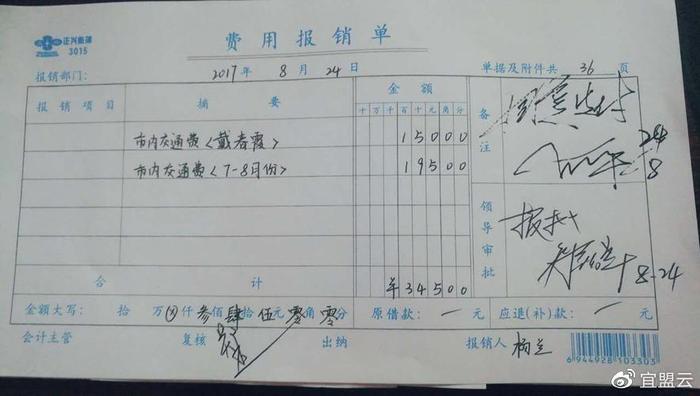 正兴票簿
3015
费用报销单
报销部门： 2017年 8月 24日 单据及附件共 36 页
报销项目 摘要 金额 备注
十万千百十元角分
市内交通费〈戴春霞〉 15000
市内交通费〈7-8月份〉 19500
24
8
领导审批
8-24
合计 ¥34500
金额大写： 拾 万 仟 叁佰肆拾伍元零角零分 原借款： 一 元 应退(补)款： 一 元
会计主管 复核 出纳 报销人 杨兰
6944928103303
@宜盟云